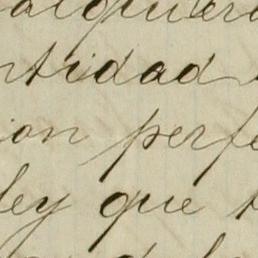 alquiera
ntidad
ion perfe
ley que